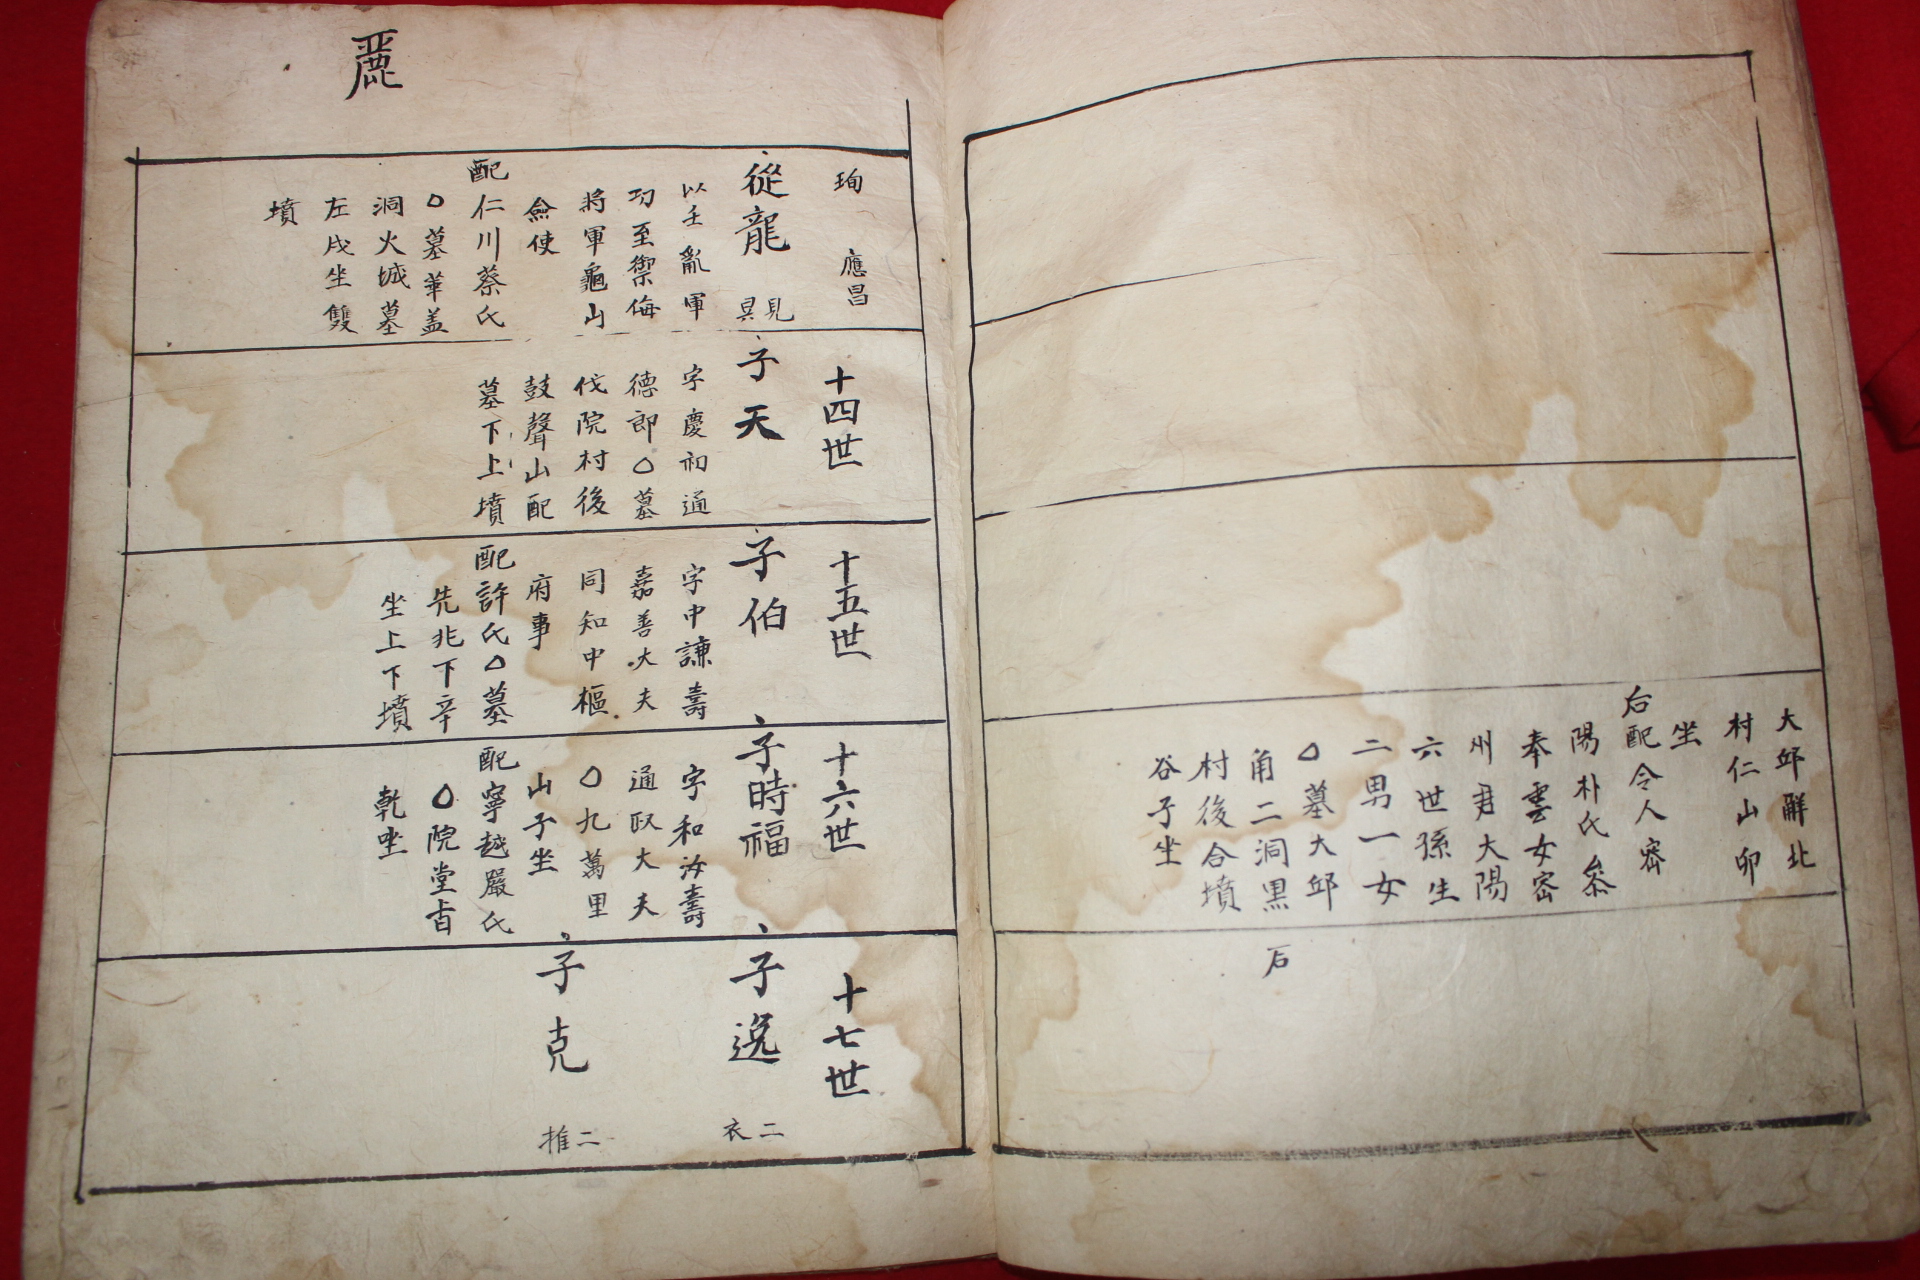 大邱解北
村仁山卯
坐
后配令人密
陽朴氏父
奉雲女密
州君大陽
六世孫生
二男一女
○墓大邱
角二洞黑
村後合墳
谷子坐
后
麗
珣 應昌
從龍 見昊
以壬亂軍
功至禦侮
將軍龜山
僉使
配仁川蔡氏
○墓華盖
洞火城墓
左戌坐雙
墳
十四世
子天
字慶初通
德郎○墓
伐院村後
鼓聲山配
墓下上墳
十五世
子伯
字中謙壽
嘉善大夫
同知中樞
府事
配許氏○墓
先兆下辛
坐上下墳
十六世
子時福
字和汝壽
通政大夫
○九萬里
山子坐
配寧越嚴氏
○院堂旨
乾坐
十七世
子逸 二衣
子克 二推